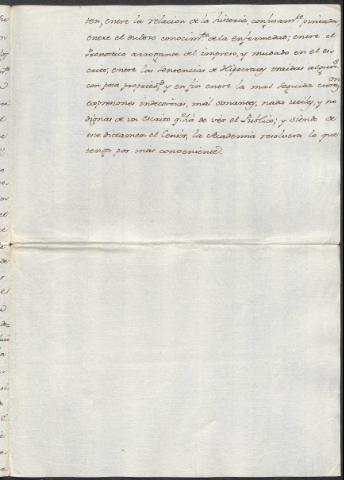 ten, entre la relacion de la historia, confusam.te pintada,
entre el entero conocim.to de la enfermedad; entre el
Pronostico arrogante del impreso, y mudado en el es
crito; entre las sentencias de Hipocrates traidas algunas
con poca propried.d y en fin entre la mal seguida
expresiones indecorosas, mal sonantes, nada utiles, y no
dignas de un escrito q.e há de ver el Publico; y siendo de
ese dictamen el Censor, la Academia resolverá lo que
tenga por mas conveniente.